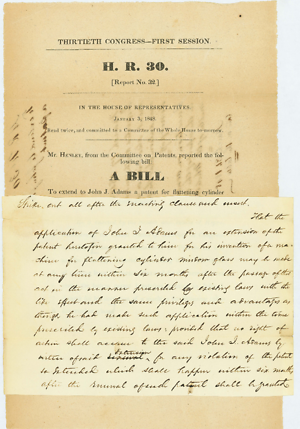 THIRTIETH CONGRESS—FIRST SESSION.
H. R. 30.
[Report No. 32.]
IN THE HOUSE OF REPRESENTATIVES.
JANUARY 3, 1848.
Read twice, and committed to a Committee of the Whole House to-morrow.
Mr. HENLEY, from the Committee on Patents, reported the following bill:
A BILL
To extend to John J. Adams a patent for flattening cylinder
Strike out all after the enacting clause and insert,
That the
application of John J. Adams for an extension of the
patent heretofore granted to him for his invention of a ma-
chine for flattening cylinder window glass may be made
at any time within six months after the passage of this
act in the manner prescribed by existing laws with the
like effect and the same privileges and advantages as
though he had made such application within the time
prescribed by existing laws, provided that no right of
action shall accrue to the said John J. Adams by
extension
for any violation of the patent
so extended which shall happen within six months
after the renewal of said patent shall be granted